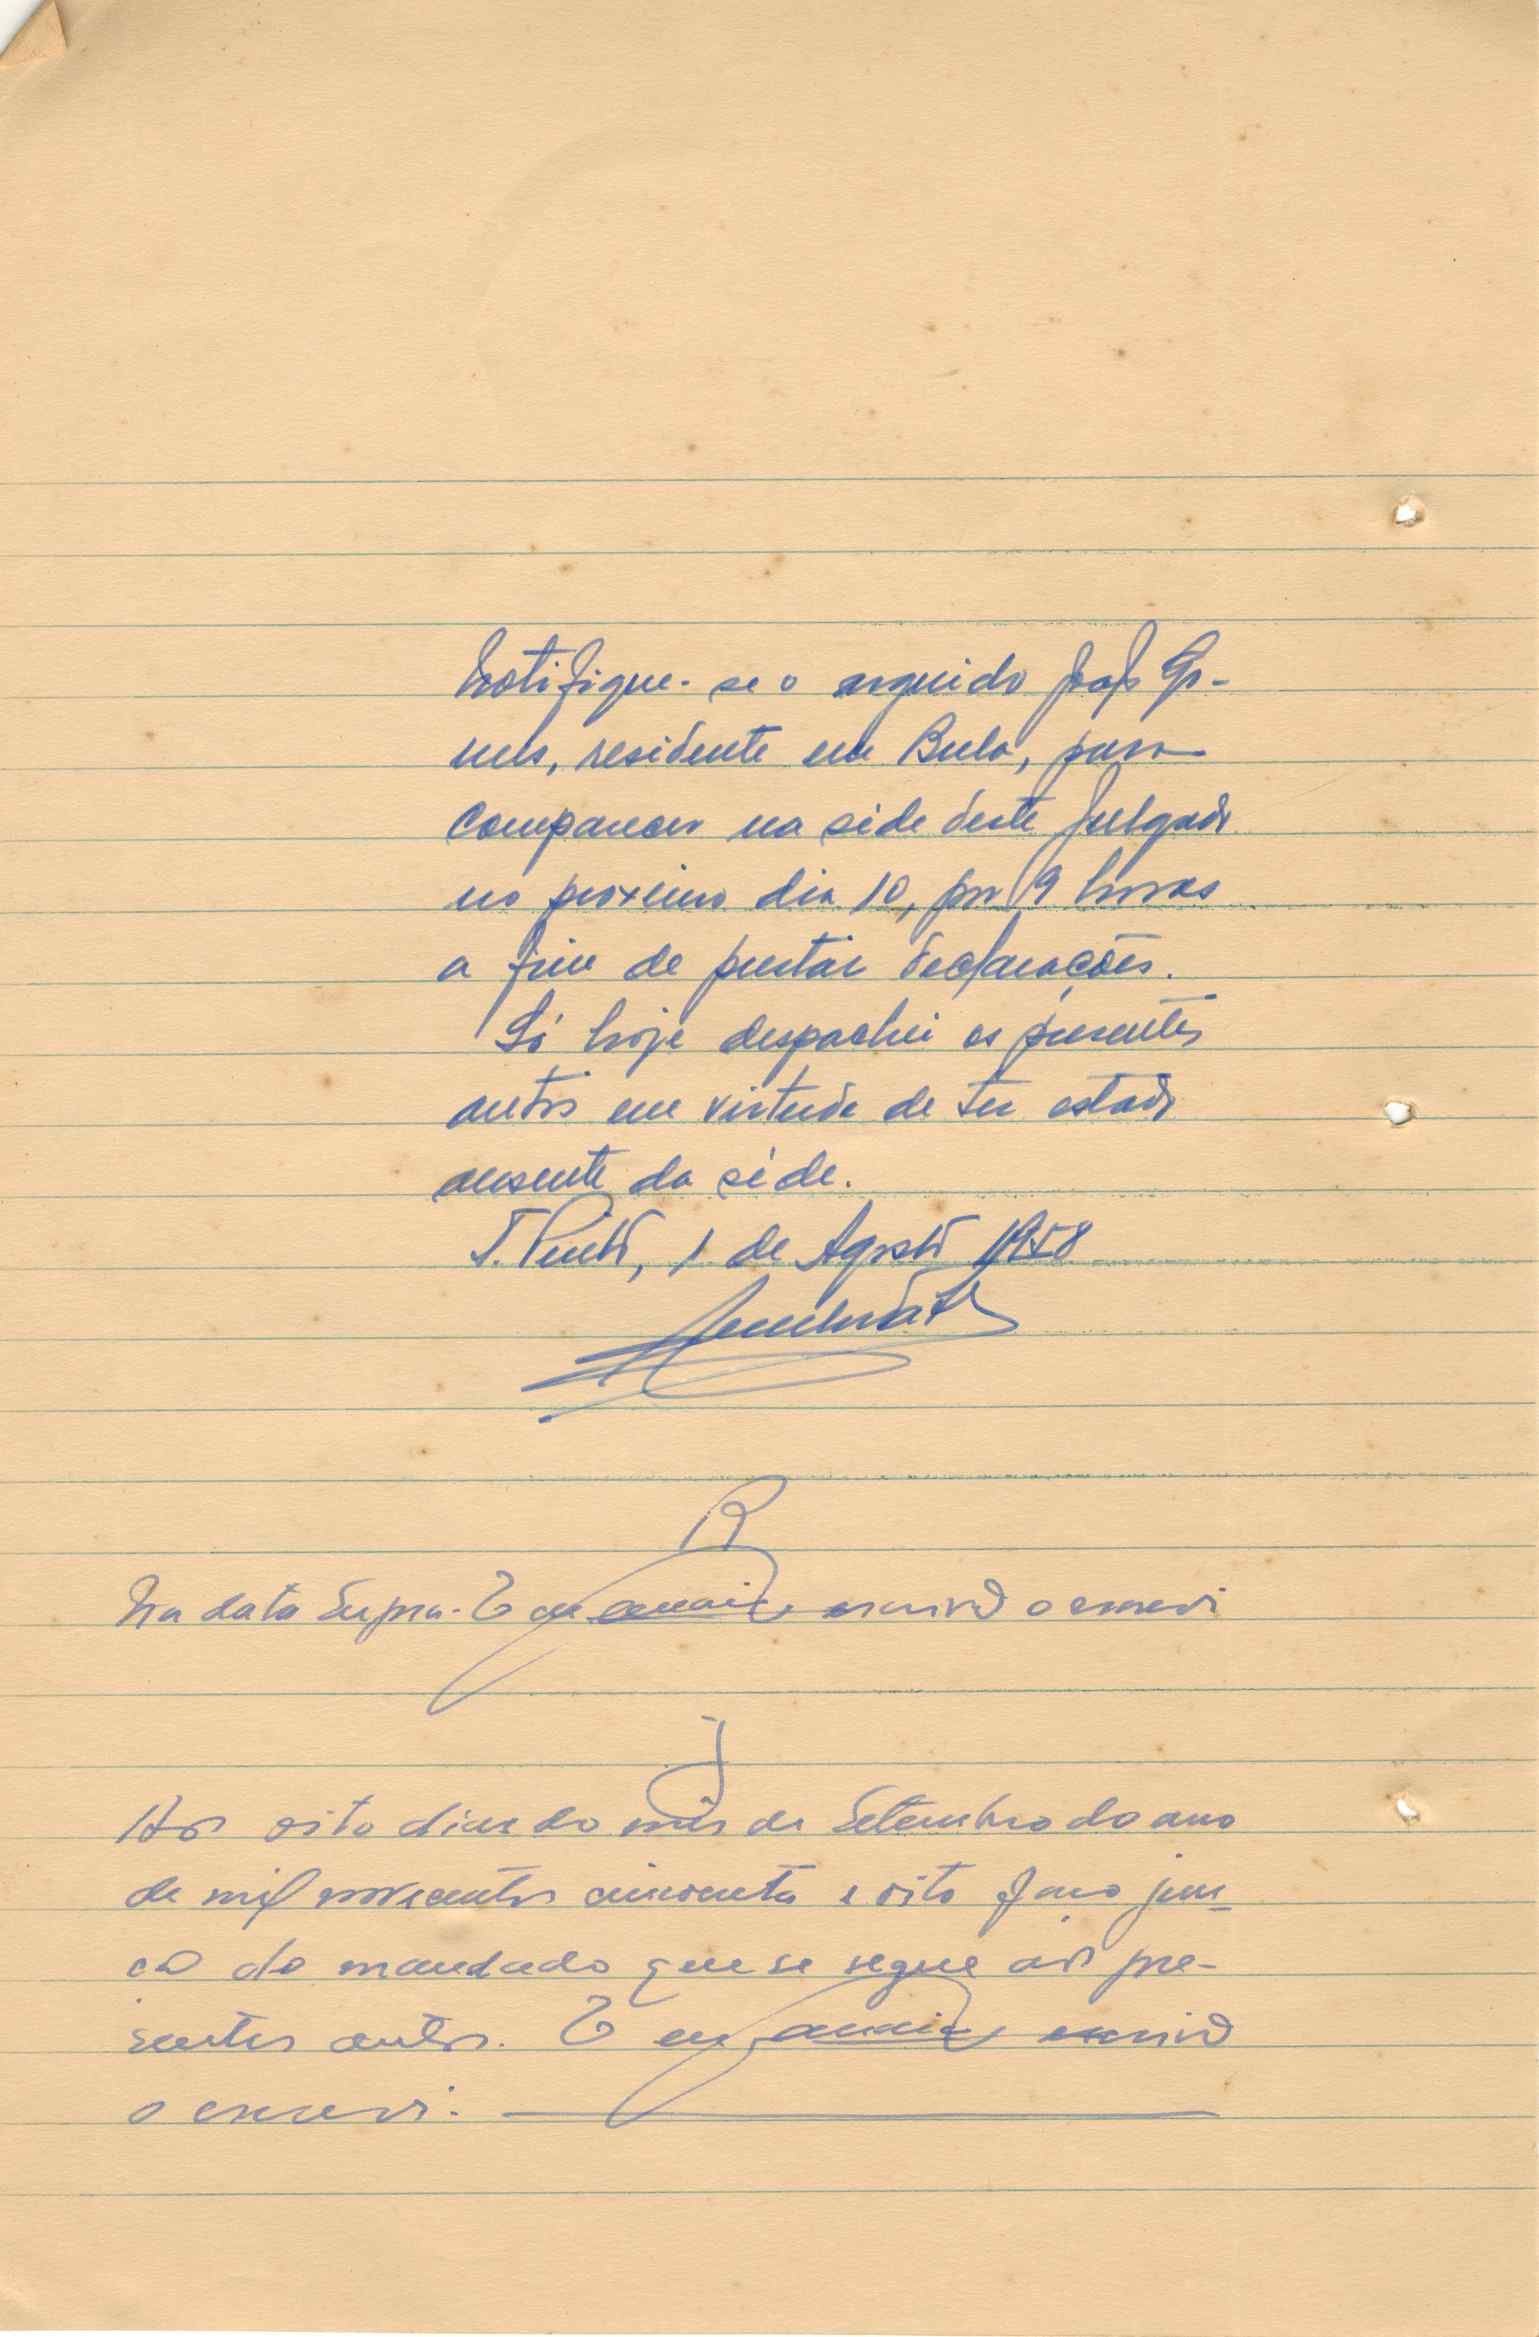 Notifique-se o arguido João Go-
mes, residente em Bula, para
comparecer na séde deste Julgado
no proximo dia 10, por 9 horas
a fim de prestar declarações.
Só hoje despachei os presentes
autos em virtude de ter estado
ausente da séde.
T. Pinto, 1 de Agosto 1958
R
Na data supra. E eu escrivão o escrevi
J
Aos oito dias do mês de Setembro do ano
de mil novecentos cincoenta e oito faço jun-
ção do mandado que se segue aos pre-
sentes autos. E eu escrivão
o escrevi.